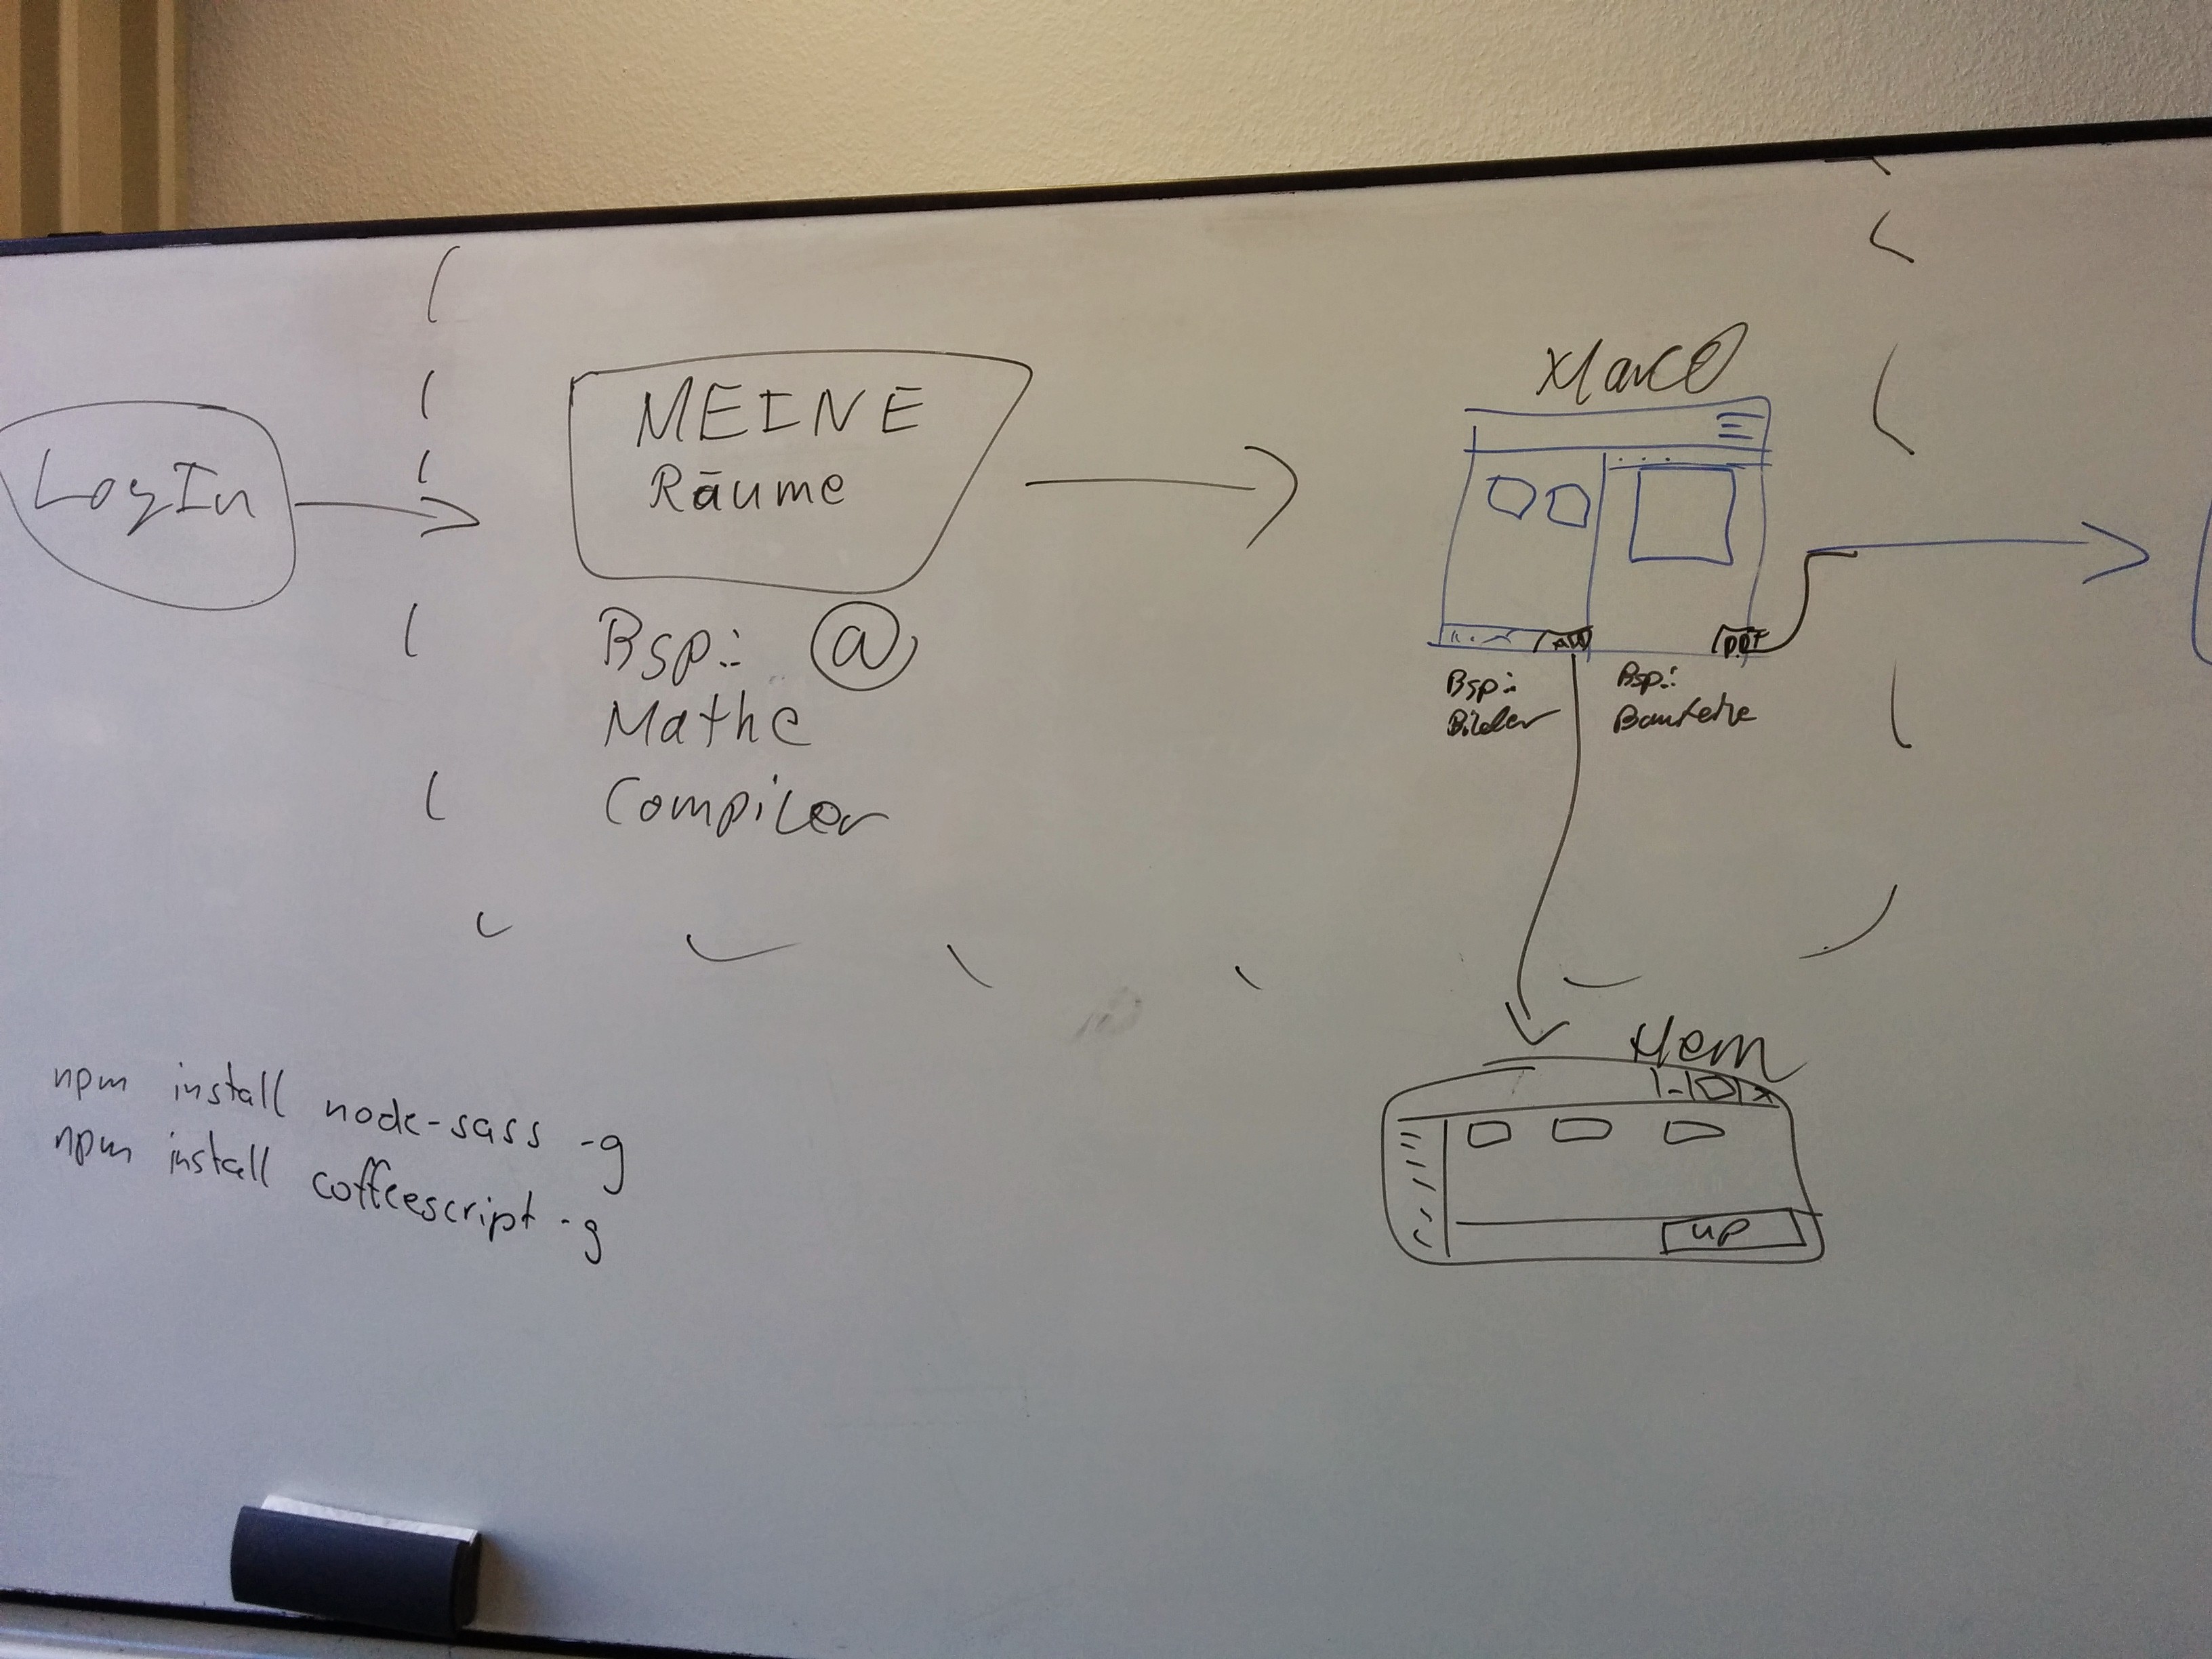 LogIn
MEINE
Räume
Bsp.:
@
Mathe
Compiler
Marco
Bsp.:
Bilder
Bsp.:
npm install node-sass -g
npm install coffeescript -g
up